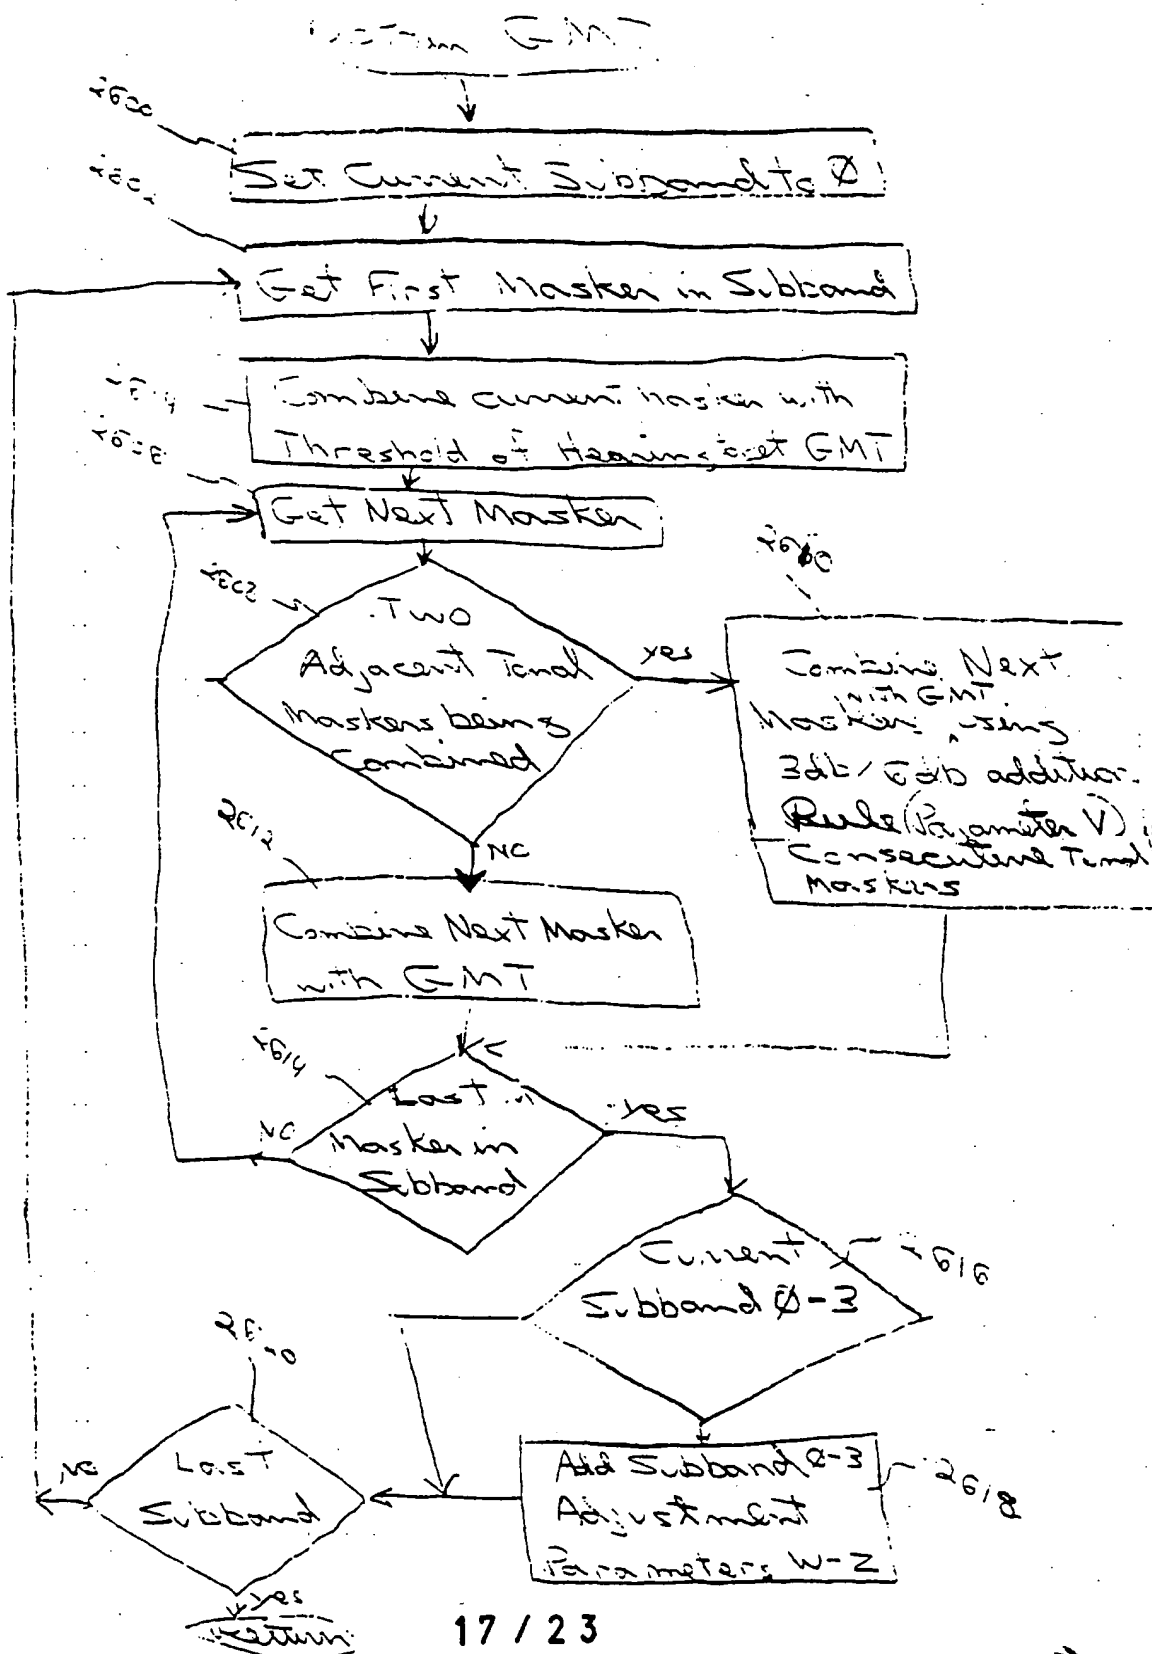 GMT
Set Current Subband to Ø
Get First Masker in Subband
Combine current masker with
Threshold of Hearing, get GMT
Get Next Masker
Two
Adjacent Tonal
Maskers being
Combined
yes
Combine Next
with GMT
Masker using
3db/6db addition
Rule (Parameter V)
Consecutive Tonal
Maskers
NO
2612
Combine Next Masker
with GMT
2614
Last
Masker in
Subband
NO
yes
Current
Subband Ø-3
2616
Add Subband Ø-3
Adjustment
Parameters W-Z
2618
Last
Subband
NO
yes
Return
17/23